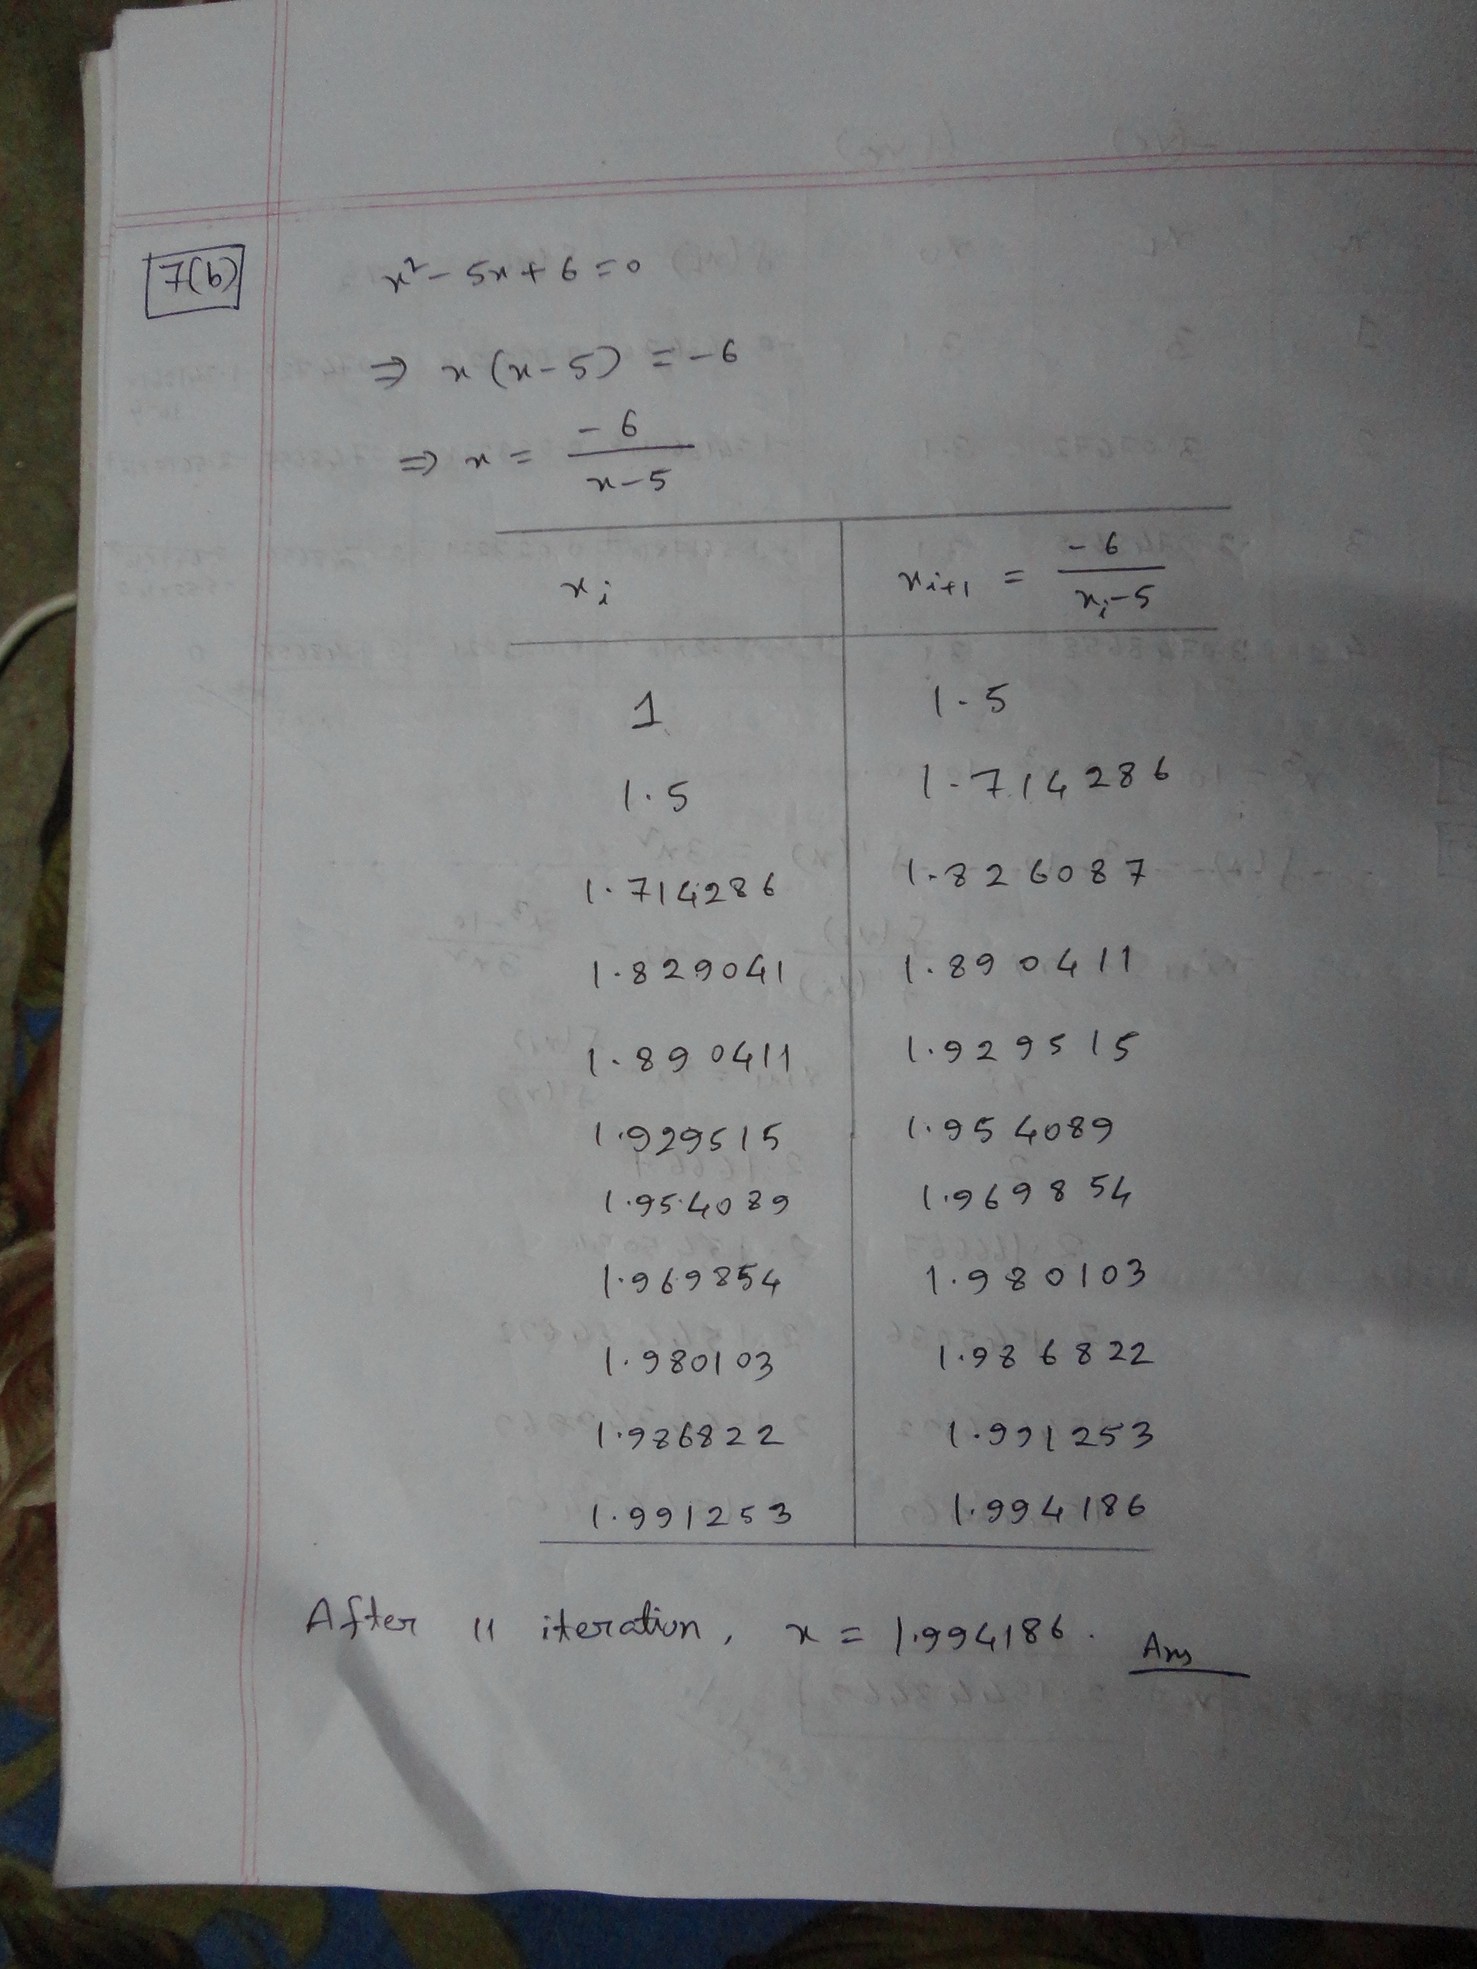 7(b)
x² - 5x + 6 = 0
⇒ x (x - 5) = -6
⇒ x = -6 / x-5
x_i | x_{i+1} = -6 / x_i-5
1 | 1.5
1.5 | 1.714286
1.714286 | 1.826087
1.829041 | 1.890411
1.890411 | 1.929515
1.929515 | 1.954089
1.954089 | 1.969854
1.969854 | 1.980103
1.980103 | 1.986822
1.986822 | 1.991253
1.991253 | 1.994186
After 11 iteration, x = 1.994186. Ans